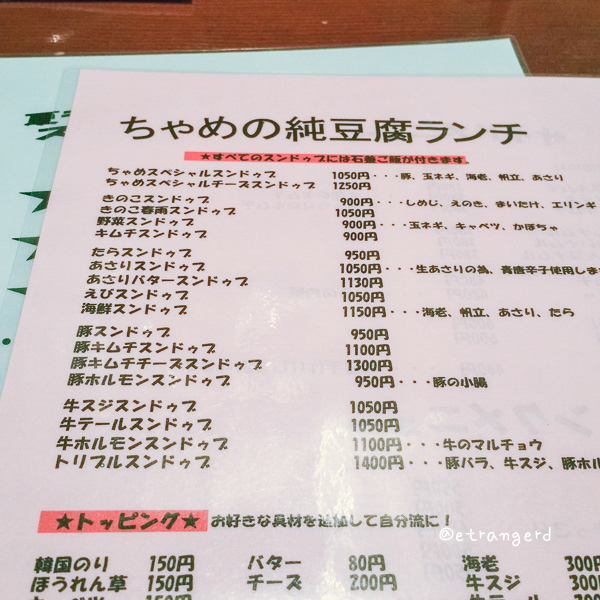 ちゃめの純豆腐ランチ
★すべてのスンドゥブには石釜ご飯が付きます。
ちゃめスペシャルスンドゥブ 1050円・・・豚、玉ネギ、海老、帆立、あさり
ちゃめスペシャルチーズスンドゥブ 1250円
きのこスンドゥブ 900円・・・しめじ、えのき、まいたけ、エリンギ
きのこ春雨スンドゥブ 1050円
野菜スンドゥブ 900円・・・玉ネギ、キャベツ、かぼちゃ
キムチスンドゥブ 900円
たらスンドゥブ 950円
あさりスンドゥブ 1050円・・・生あさりの為、青唐辛子使用しま
あさりバタースンドゥブ 1130円
えびスンドゥブ 1050円
海鮮スンドゥブ 1150円・・・海老、帆立、あさり、たら
豚スンドゥブ 950円
豚キムチスンドゥブ 1100円
豚キムチチーズスンドゥブ 1300円
豚ホルモンスンドゥブ 950円・・・豚の小腸
牛スジスンドゥブ 1050円
牛テールスンドゥブ 1050円
牛ホルモンスンドゥブ 1100円・・・牛のマルチョウ
トリプルスンドゥブ 1400円・・・豚バラ、牛スジ、豚ホル
★トッピング★ お好きな具材を追加して自分流に！
@etrangerd
韓国のり 150円 バター 80円 海老 300円
ほうれん草 150円 チーズ 200円 牛スジ 300円